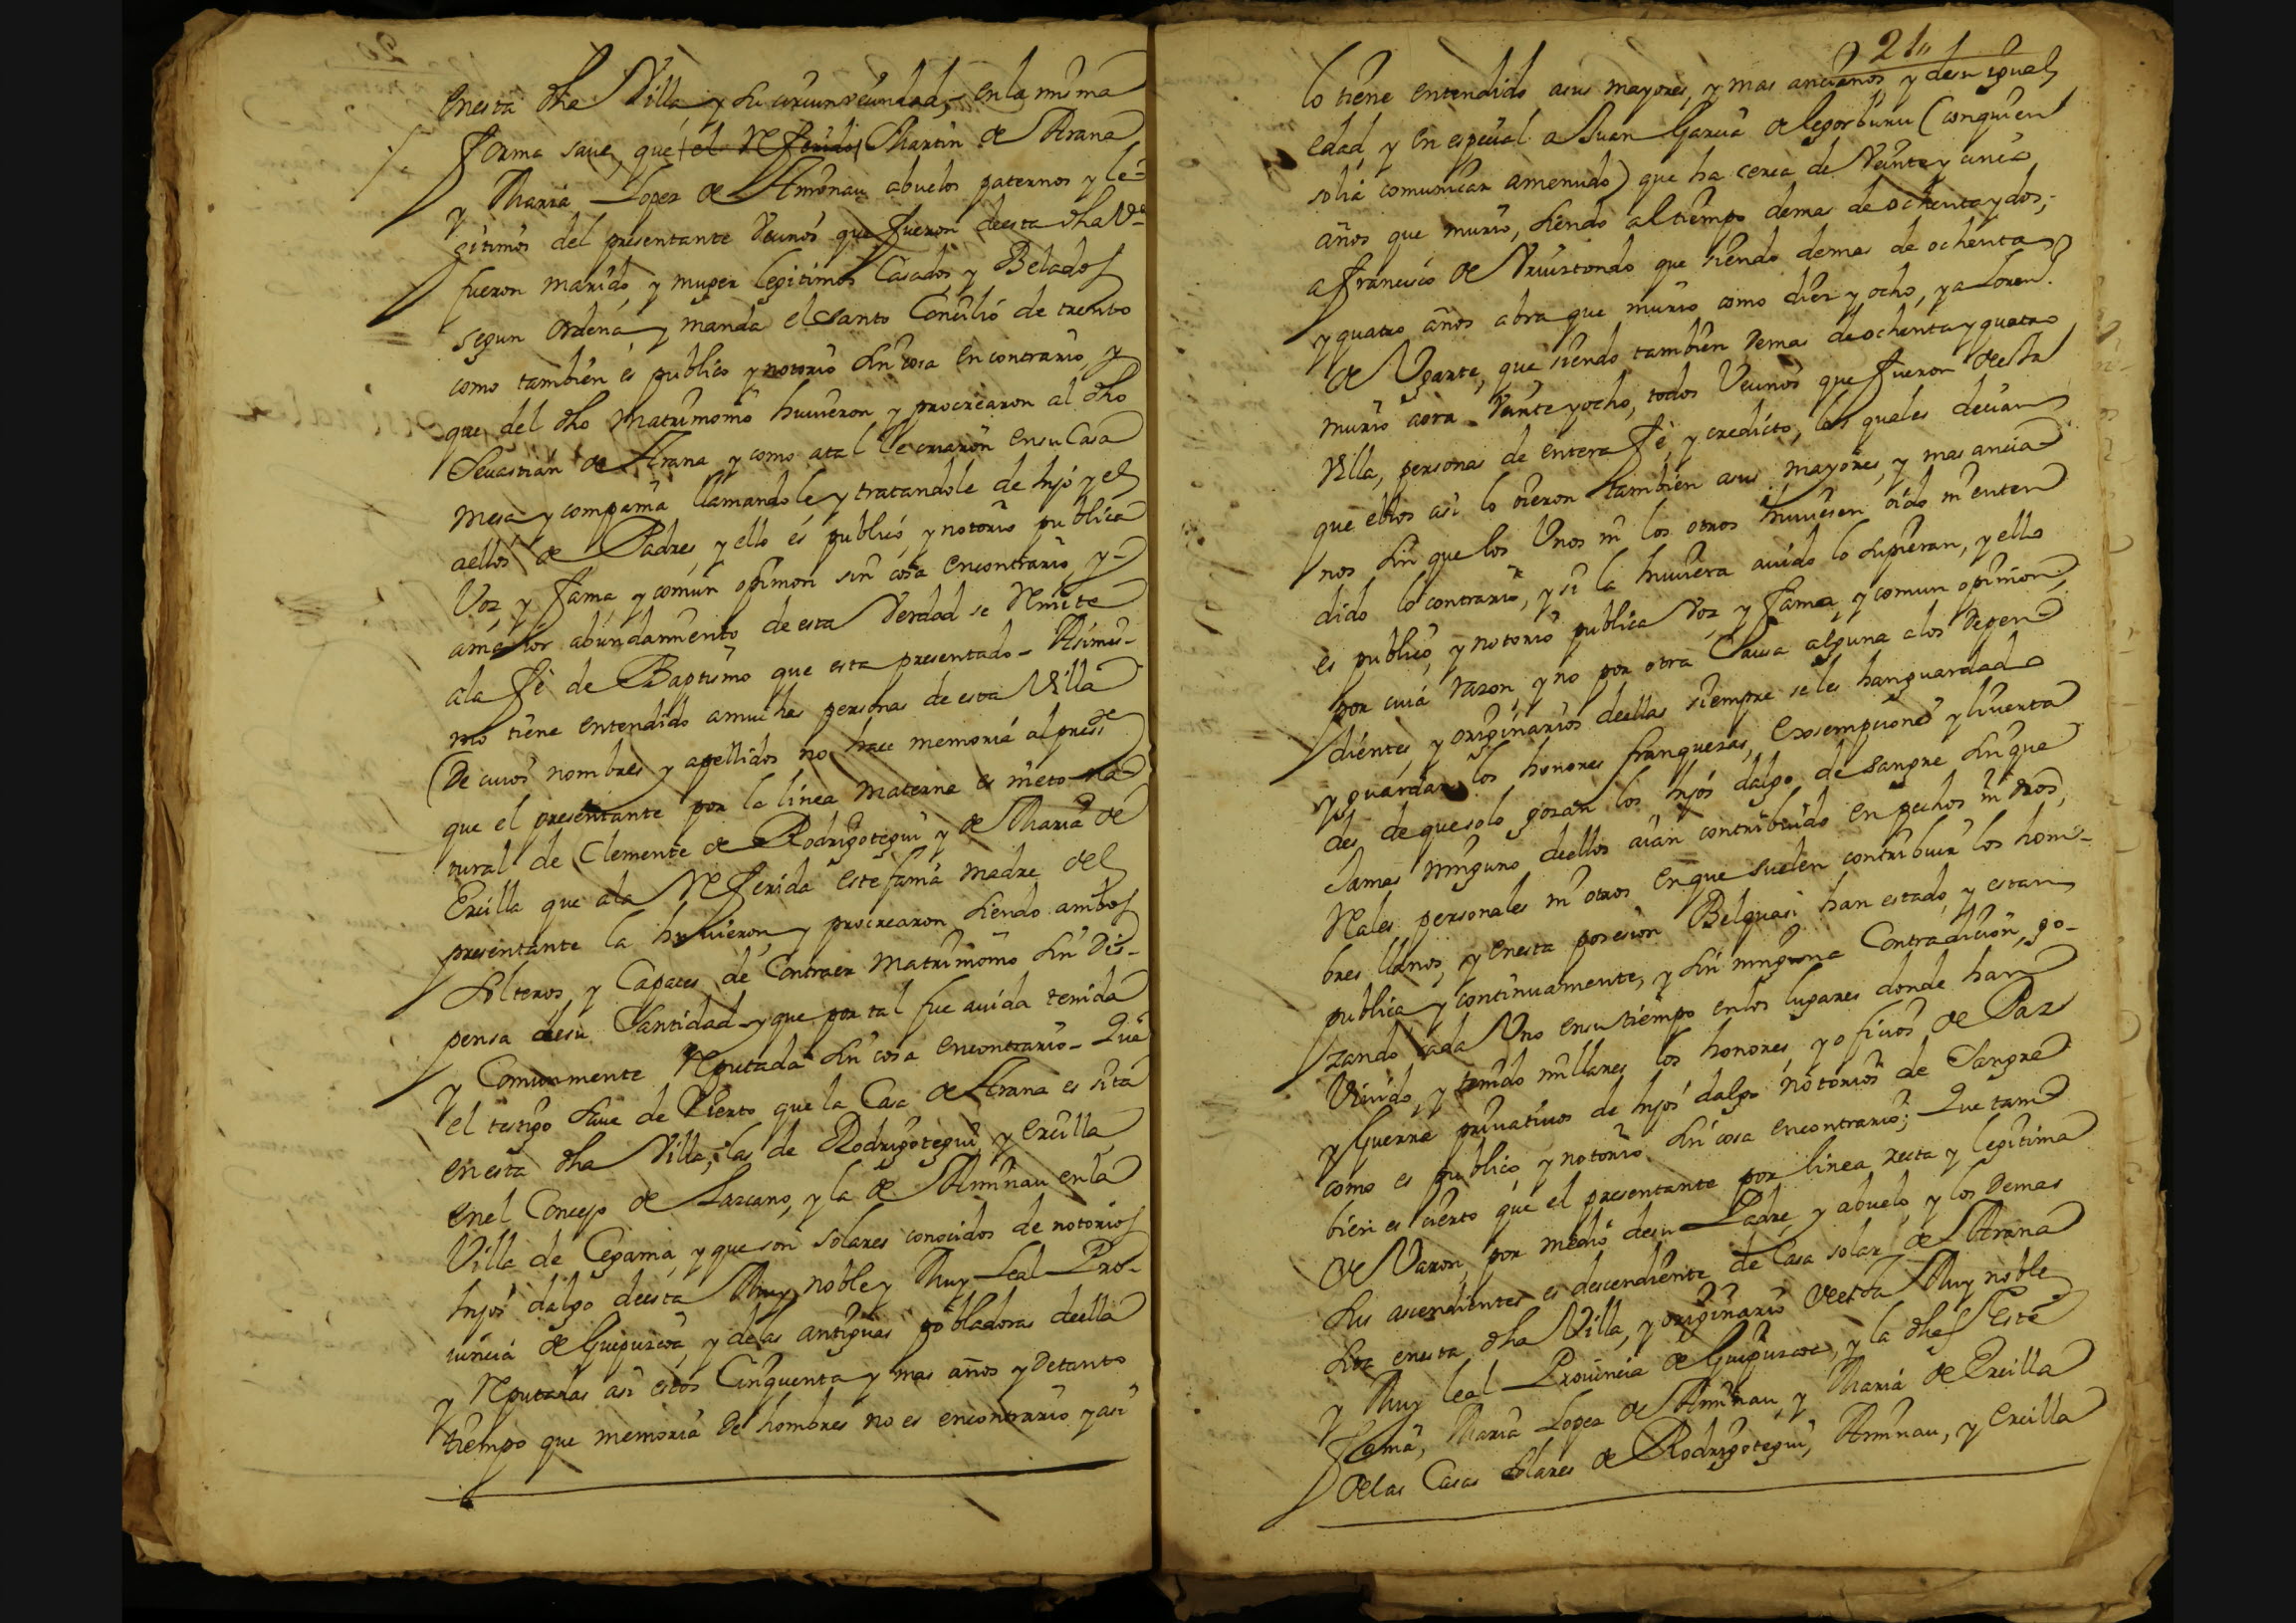 enesta dha Villa, y su circunvecindad, en la misma
forma save, que el referido Martin de Arana
y Maria Lopez de Aminau abuelos paternos y le-
gitimos del presentante vecinos que fueron deesta dha Va
fueron marido, y muger legitimos Casados, y Belados
segun ordena, y manda el santo Concilio de trento
como tambien es publico y notorio sin cosa en contrario, y
que del dho Matrimonio huvieron y procrearon al dho
Sevastian de Arana y como atal le criaron ensu Casa
mesa y compania llamandole y tratandole de hijo y el
aellos de Padres, y ello es publico, y notorio publica
Voz, y fama, y comun opinion sin cosa encontrario, y
amaior abundamiento deesta Verdad se remite
ala fe de Baptismo que esta presentado - Asimis-
mo tiene entendido amuchas personas de esta Villa
(De cuios nombres y apellidos no hace memoria alpresse
que el presentante por la linea materna es nieto na-
tural de Clemente de Rodrigotegui y de Maria de
Ercilla que ala referida estefania madre del
presentante la huvieron, y procrearon siendo ambos
solteros, y Capaces de Contraer Matrimonio sin dis-
pensa desu Santidad y que por tal fue auida tenida
y Comunmente reputada sin cosa encontrario - Que
el testigo save de cierto que la Casa de Arana es sita
en esta dha Villa, las de Rodrigotegui, y Ercilla
enel Concejo de Lazcano, y la de Aminau en la
Villa de Cegama, y que son solares conocidos de notorios
hijos dalgo deesta Muy noble y Muy Leal Pro-
uincia de Guipuzcoa, y delas antiguas pobladoras deella
y reputadas asi estos Cinquenta y mas años y detanto
tiempo que memoria de hombres no es encontrario, y asi
21
lo tiene entendido asus mayores, y mas ancianos, y desu igual
edad, y en especial a Juan Garcia de legorburu (conquien
solia comunicar amenudo) que ha cerca de Veinte y cinco
años que murio, siendo altiempo demas de ochenta y dos;
a francisco de Vruiztondo que siendo demas de ochenta
y quatro años abra que murio como diez y ocho, y a Loren.o
de Vgarte, que siendo tambien demas de ochenta y quatro
murio aora Veinte y ocho, todos Vecinos que fueron desta
Villa, personas de entera fe, y credicto, los quales decian
que ellos asi lo oieron tambien asus mayores, y mas ancia-
nos sin que los Unos ni los otros huviesen oido ni enten
dido lo contrario, y si la huviera auido lo supieran, y ello
es publico, y notorio publica voz y fama, y comun opinion,
por cuia razon, y no por otra Causa alguna alos depen
dientes, y originarios deellas siempre seles hanguardado
y guardan los honores franquezas, exsempciones y liuerta
des de que solo gozan los hijos dalgo de sangre sinque
Jamas ninguno deellos aian contribuido en pechos ni dros,
reales personales ni otros enque suelen contribuir los hom-
bres llanos, y enesta posesion Belquasi han estado, y estan
publica y continuamente, y sin ninguna Contradicion, go-
zando cada Uno ensu tiempo enlos lugares donde han
Viuido, y tenido millares los honores, y oficios de Paz
y Guerra priuatiuos de hijos dalgo notorios de Sangre
como es publico, y notorio sin cosa encontrario; Que tam
bien es cierto que el presentante por linea recta y legitima
de Varon, por medio desu Padre, y abuelo, y los demas
sus ascendientes es descendiente de Casa solar de Arana
sita enesta dha Villa, y originario deesta Muy noble
y Muy leal Prouincia de Guipuzcoa, y la dha Este
fania, Maria Lopez de Aminau, y Maria de Ercilla
delas Casas Solares de Rodrigotegui, Aminau, y Ercilla